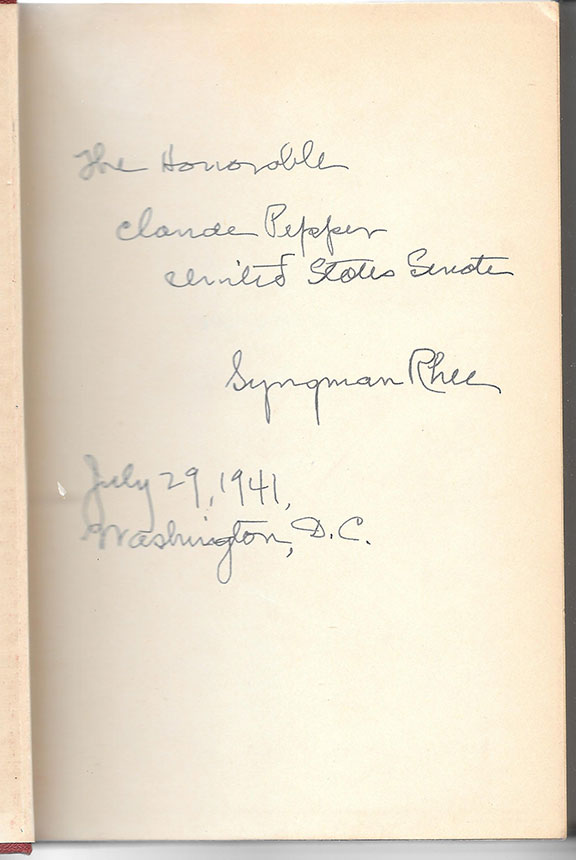 The Honorable
Claude Pepper
United States Senate
Syngman Rhee
July 29, 1941,
Washington, D.C.